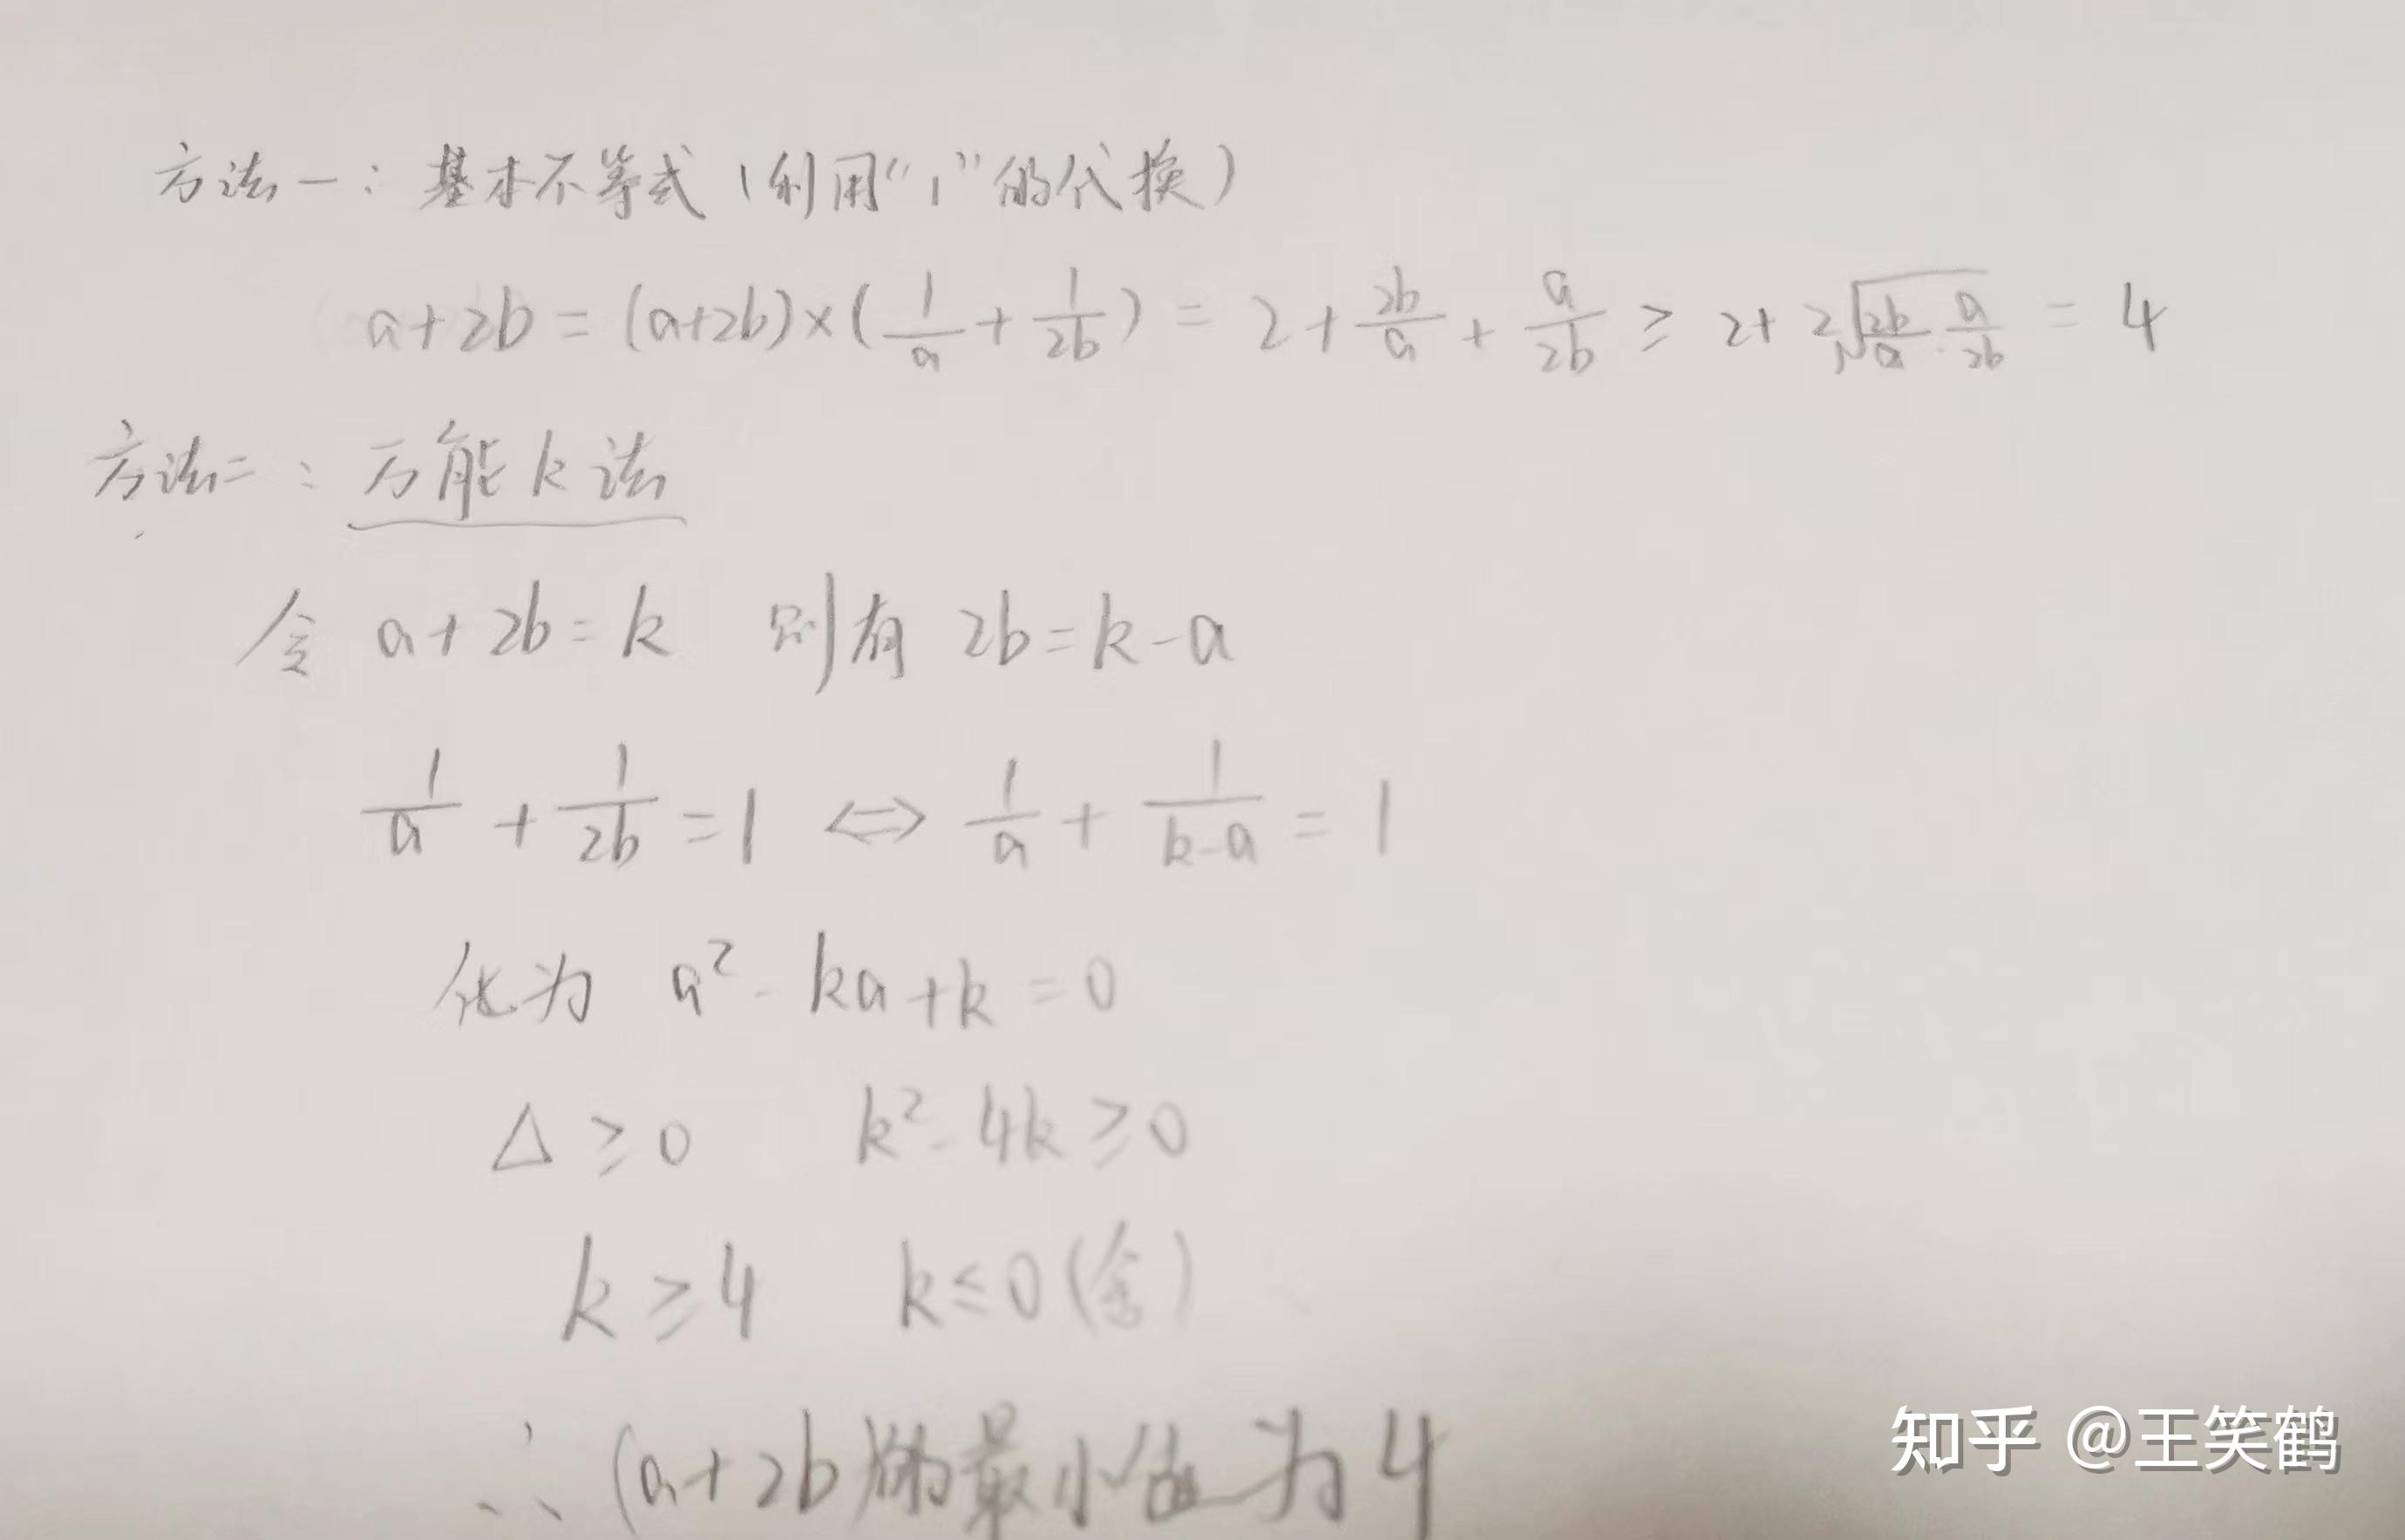 方法一：基本不等式（利用“1”的代换）
a+2b = (a+2b)×(1/a + 1/2b) = 2 + 2b/a + a/2b ≥ 2+2√(2b/a · a/2b) = 4
方法二：万能k法
令 a+2b=k 则有 2b=k-a
1/a + 1/2b =1 ⇔ 1/a + 1/k-a = 1
化为 a²-ka+k=0
△≥0 k²-4k≥0
k≥4 k≤0(舍)
∴(a+2b)的最小值为4
知乎 @王笑鹤